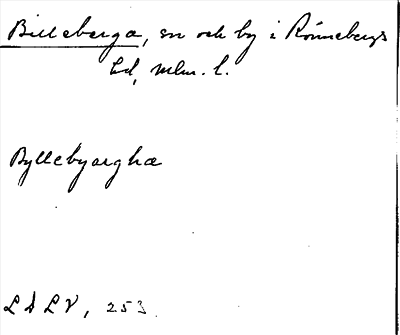 Billeberga, sn och by i Rönnebergs
hd, Mlm. l.
Byllebyarghæ
LDLV, 253.